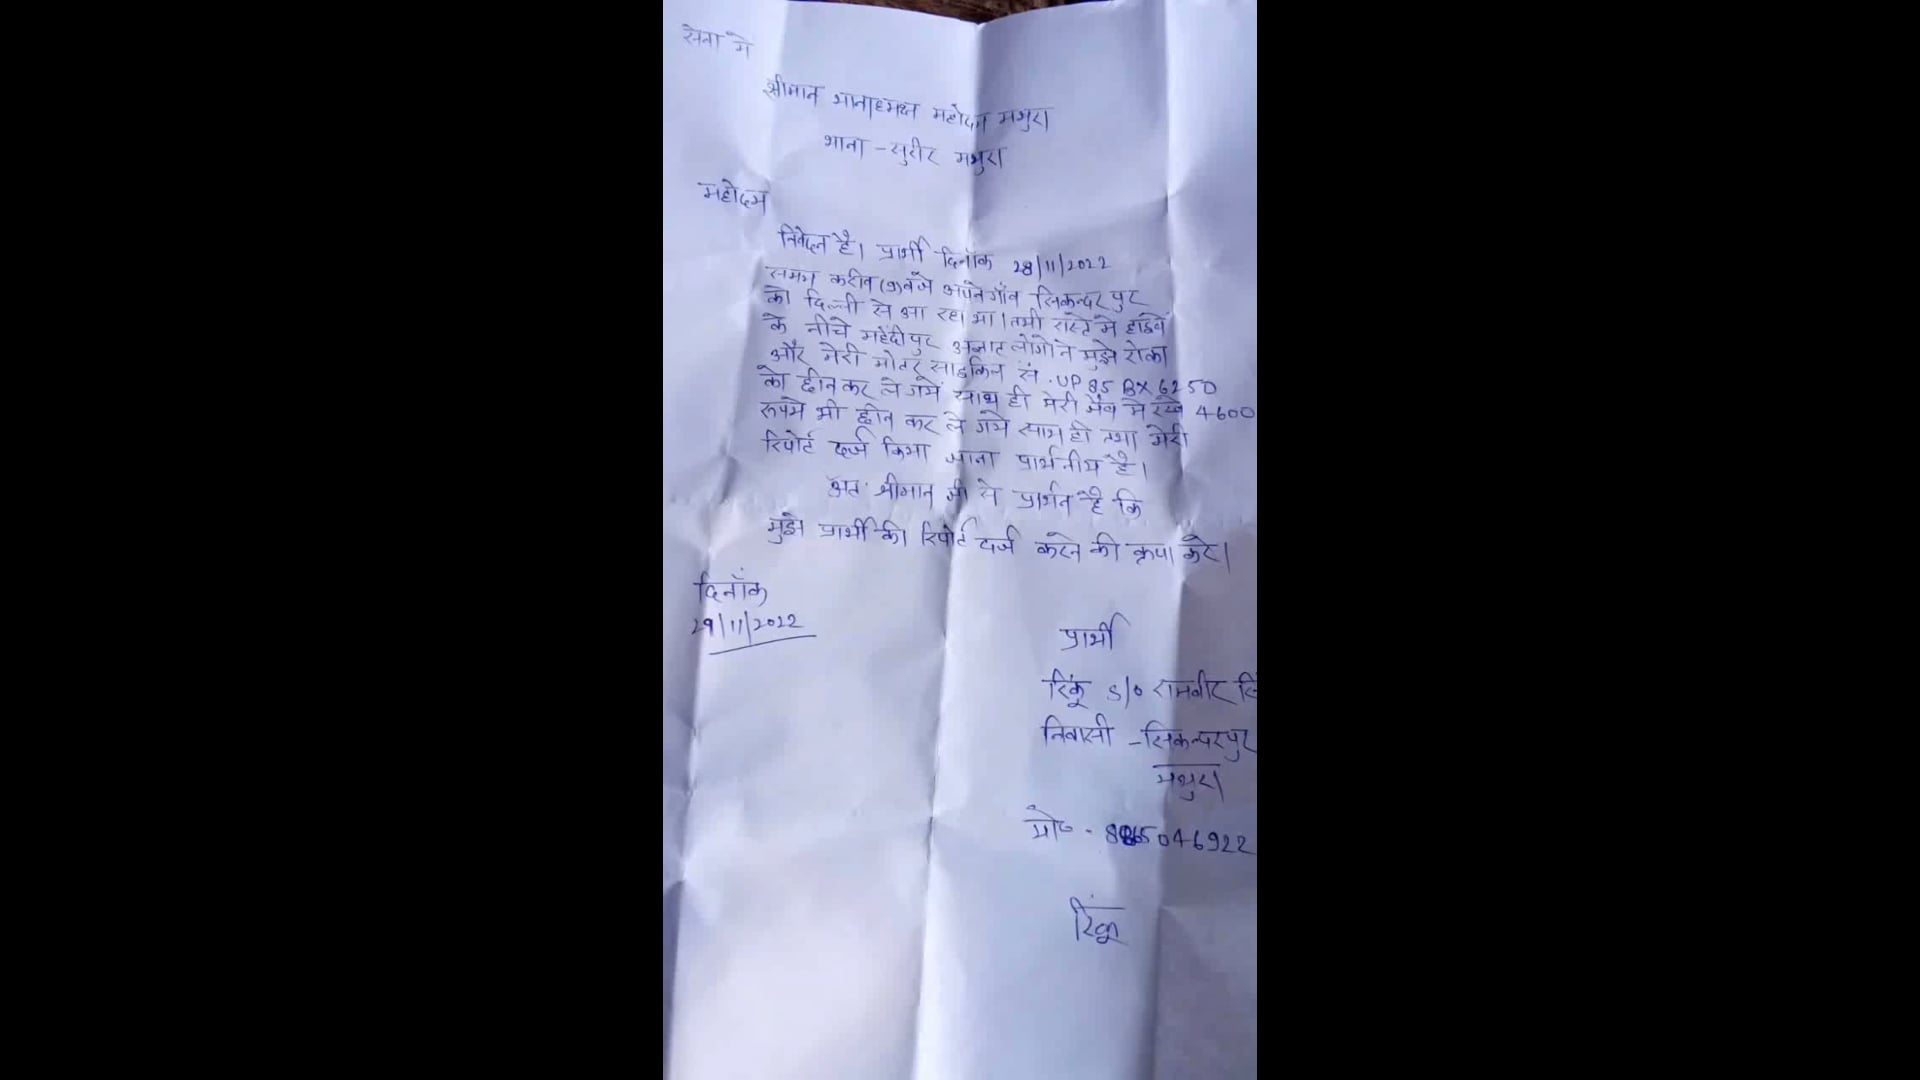 सेवा में
श्रीमान थानाध्यक्ष महोदय मथुरा
थाना - सुरीर मथुरा
महोदय
निवेदन है। प्रार्थी दिनाँक 28/11/2022
समय करीब (9) बजे अपने गाँव सिकन्दरपुर
को दिल्ली से आ रहा था। तभी रास्ते मे हाइवे
के नीचे महेंदीपुर अज्ञात लोगो ने मुझे रोका
और मेरी मोटर साइकिल सं. UP 85 BX 6250
को छीन कर ले गये साथ ही मेरी जेब मे रखे 4600
रुपये भी छीन कर ले गये साथ ही तथा मेरी
रिपोर्ट दर्ज किया जाना प्रार्थनीय है।
अतः श्रीमान जी से प्रार्थन है कि
मुझे प्रार्थी की रिपोर्ट दर्ज करने की कृपा करे।
दिनाँक
29/11/2022
प्रार्थी
रिंकू S/o रामवीर
निवासी - सिकन्दरपुर
मथुरा
मो० -
रिंकू